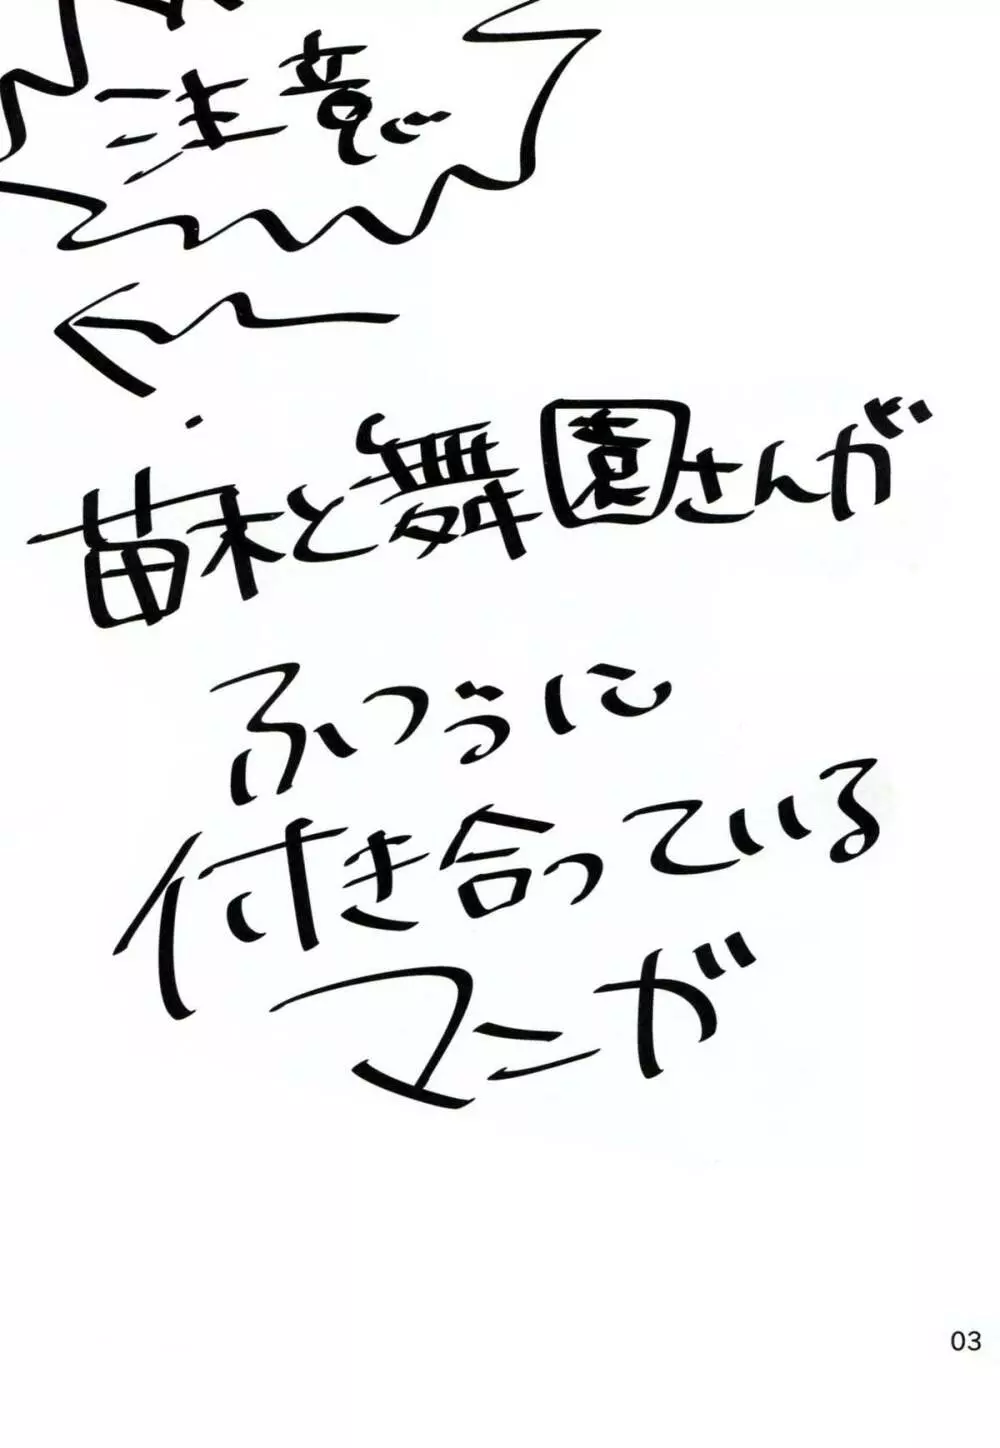 注意で
苗木と舞園さんが
ふつうに
付き合っている
マンガ
03